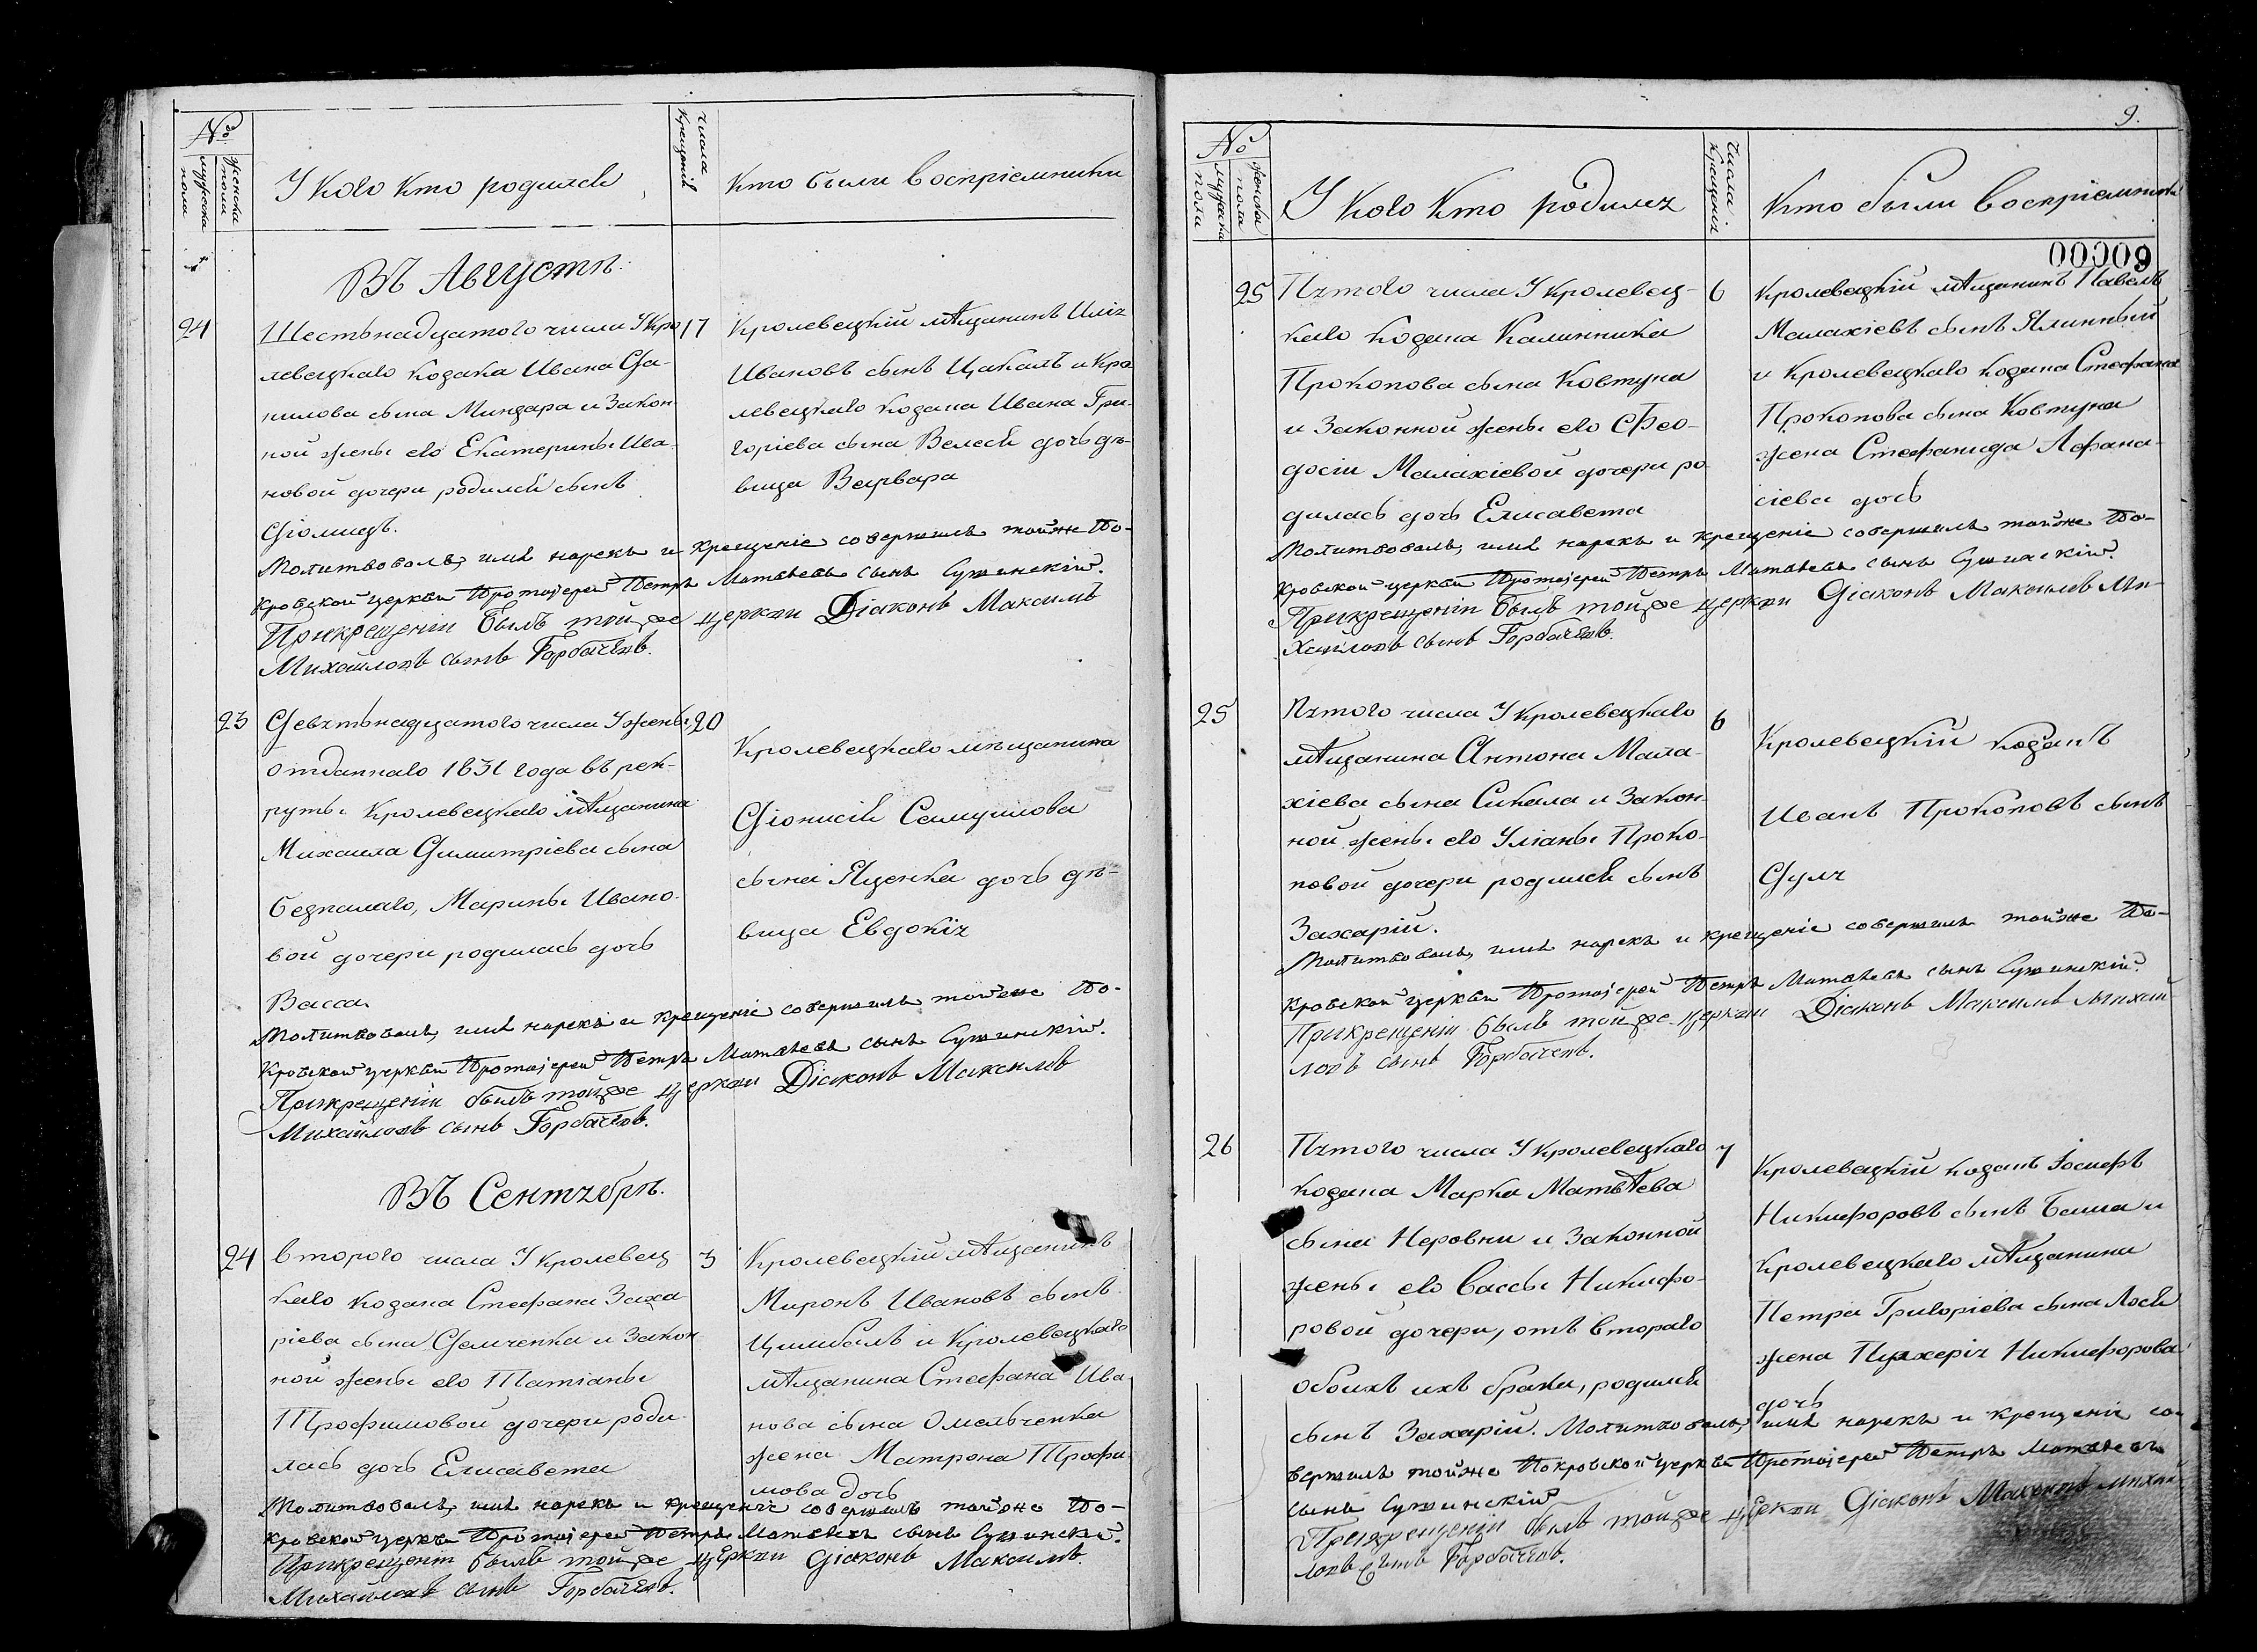 №
мужеска пола
женска пола
У кого кто родился
числа крещенія
Кто были воспріемники
Въ Августѣ.
24
Шестьнадцатого числа У Кро
левецкаго козака Ивана Да-
нилова сына Миндара и Закон
ной жены его Екатерины Ива
новой дочери родился сынъ
Діомидъ.
17
Кролевецкій мѣщанинъ Илія
Ивановъ сынъ Цакалъ и Кро
левецкаго козака Ивана Гри-
горіева сына Велеся дочь дѣ-
вица Варвара
Молитвовалъ, имя нарекъ и крещеніе совершилъ тойже По-
кровской церкви Протоіерей Петръ Матвѣевъ сынъ Сушинскій.
При крещеніи былъ тойже церкви Діаконъ Максимъ
Михайловъ сынъ Горбачевъ.
23
Девятьнадцатого числа У жены
отданнаго 1831 года въ рек-
руты Кролевецкаго мѣщанина
Михаила Димитріева сына
Безпалаго, Марины Ивано-
вой дочери родилась дочь
Васса.
20
Кролевецкаго мѣщанина
Діонисія Самуилова
сына Яценка дочь дѣ-
вица Евдокія
Молитвовалъ, имя нарекъ и крещеніе совершилъ тойже По-
кровской церкви Протоіерей Петръ Матвѣевъ сынъ Сушинскій.
При крещеніи былъ тойже церкви Діаконъ Максимъ
Михайловъ сынъ Горбачевъ.
Въ Сентябрѣ.
24
Второго числа У Кролевец
каго козака Стефана Заха
ріева сына Демченка и Закон
ной жены его Татіаны
Трофимовой дочери роди-
лась дочь Елисавета
3
Кролевецкій мѣщанинъ
Миронъ Ивановъ сынъ
Цимбалъ и Кролевецкаго
мѣщанина Стефана Ива
нова сына Омельченка
жена Матрона Трофи
мова дочь
Молитвовалъ, имя нарекъ и крещеніе совершилъ тойже По-
кровской церкви Протоіерей Петръ Матвѣевъ сынъ Сушинскій.
При крещеніи былъ тойже церкви Діаконъ Максимъ
Михайловъ сынъ Горбачевъ.
9.
№
мужеска пола
женска пола
У кого кто родился
Числа крещенія
Кто были воспріемники
00009
25
Пятого числа У Кролевец-
каго козака Калинника
Прокопова сына Ковтуна
и Законной жены его Фео-
досіи Малахіевой дочери ро
дилась дочь Елисавета
6
Кролевецкій мѣщанинъ Павелъ
Малахіевъ сынъ Ялинный
и Кролевецкаго козака Стефана
Прокопова сына Ковтуна
жена Стефанида Афана-
сіева дочь
Молитвовалъ, имя нарекъ и крещеніе совершилъ тойже По-
кровской церкви Протоіерей Петръ Матвѣевъ сынъ Сушинскій.
При крещеніи былъ тойже церкви Діаконъ Максимъ Ми-
хайловъ сынъ Горбачевъ.
25
Пятого числа У Кролевецкаго
мѣщанина Антона Мала-
хіева сына Сикала и Закон-
ной жены его Уліаны Проко-
повой дочери родился сынъ
Захарій.
6
Кролевецкій козакъ
Иванъ Прокоповъ сынъ
Дуля
Молитвовалъ, имя нарекъ и крещеніе совершилъ тойже По-
кровской церкви Протоіерей Петръ Матвѣевъ сынъ Сушинскій.
При крещеніи былъ тойже церкви Діаконъ Максимъ Михай
ловъ сынъ Горбачевъ.
26
Пятого числа У Кролевецкаго
козака Марка Матвѣева
сына Неровни и Законной
жены его Вассы Никифо-
ровой дочери, отъ втораго
обоихъ ихъ брака, родился
сынъ Захарій.
7
Кролевецкій козакъ Іосифъ
Никифоровъ сынъ Баша и
Кролевецкаго мѣщанина
Петра Григоріева сына Лося
жена Пулхерія Никифорова
дочь
Молитвовалъ, имя нарекъ и крещеніе со-
вершилъ тойже Покровской церкви Протоіерей Петръ Матвѣевъ
сынъ Сушинскій
При крещеніи былъ тойже церкви Діаконъ Максимъ Михай
ловъ сынъ Горбачевъ.